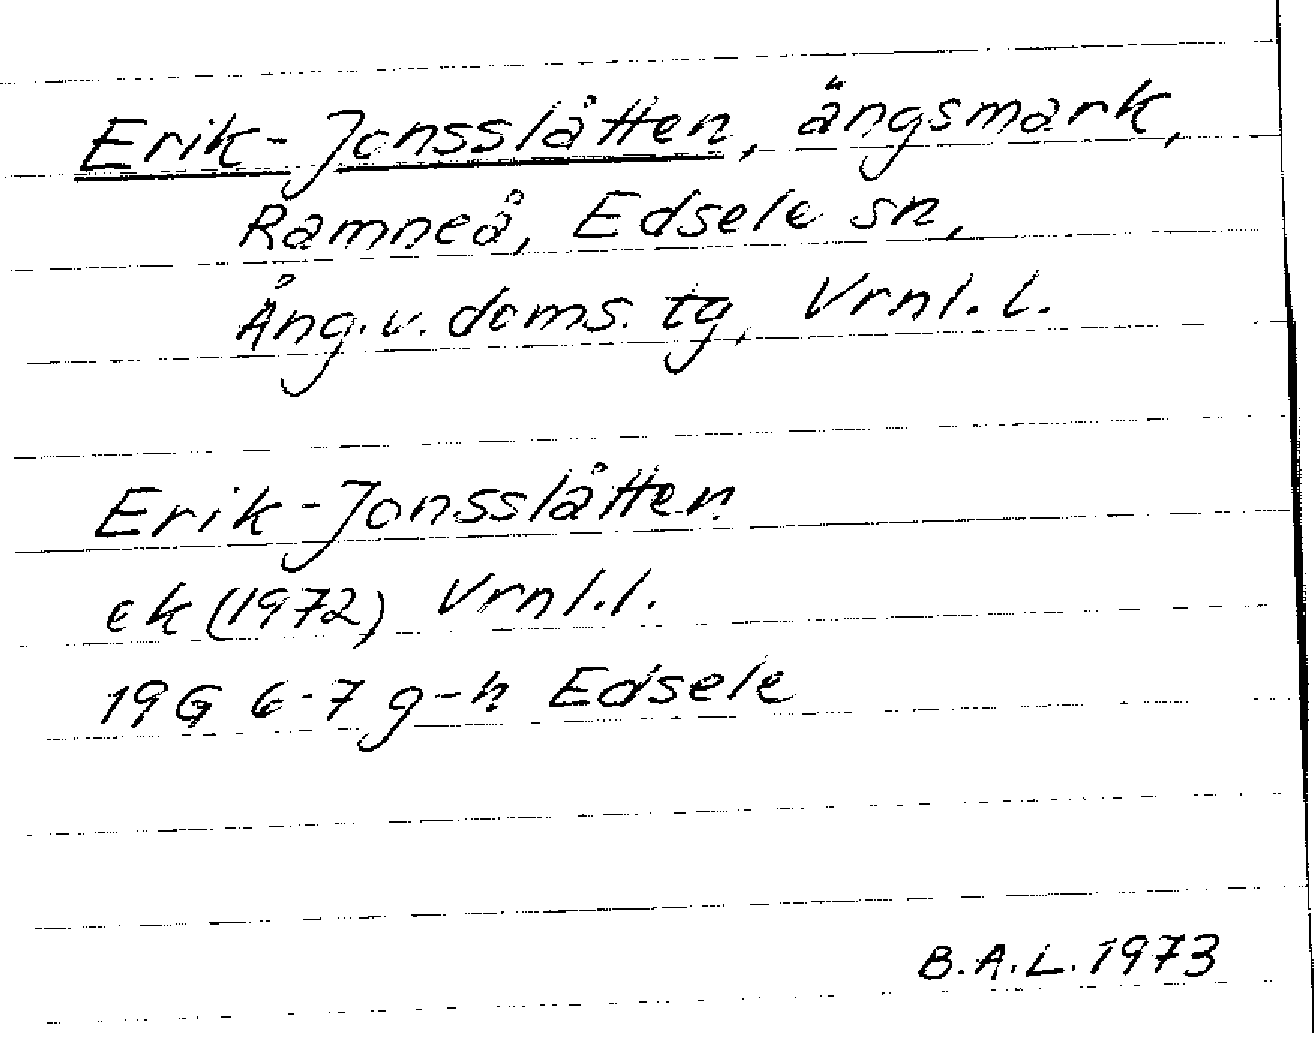 Erik-Jonsslåtten, ängsmark,
Ramneå, Edsele sn,
Ång.v. doms. tg, Vrnl. l.
Erik-Jonsslåtten
ek (1972) Vrnl.l.
19G 6-7 g-h Edsele
B.A.L. 1973